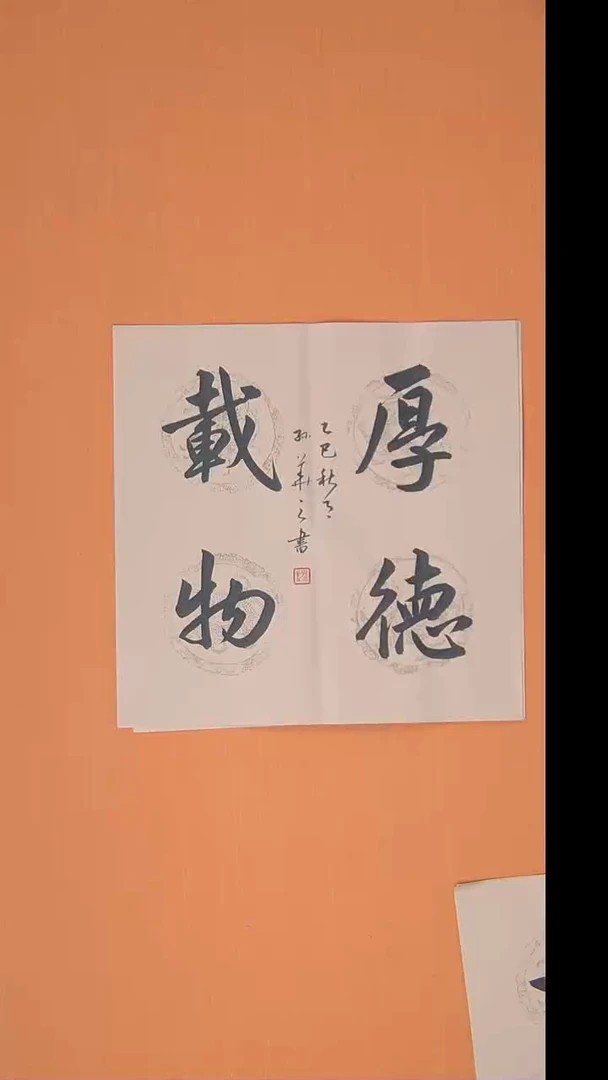 厚德
載物
乙巳秋月
孙華之書